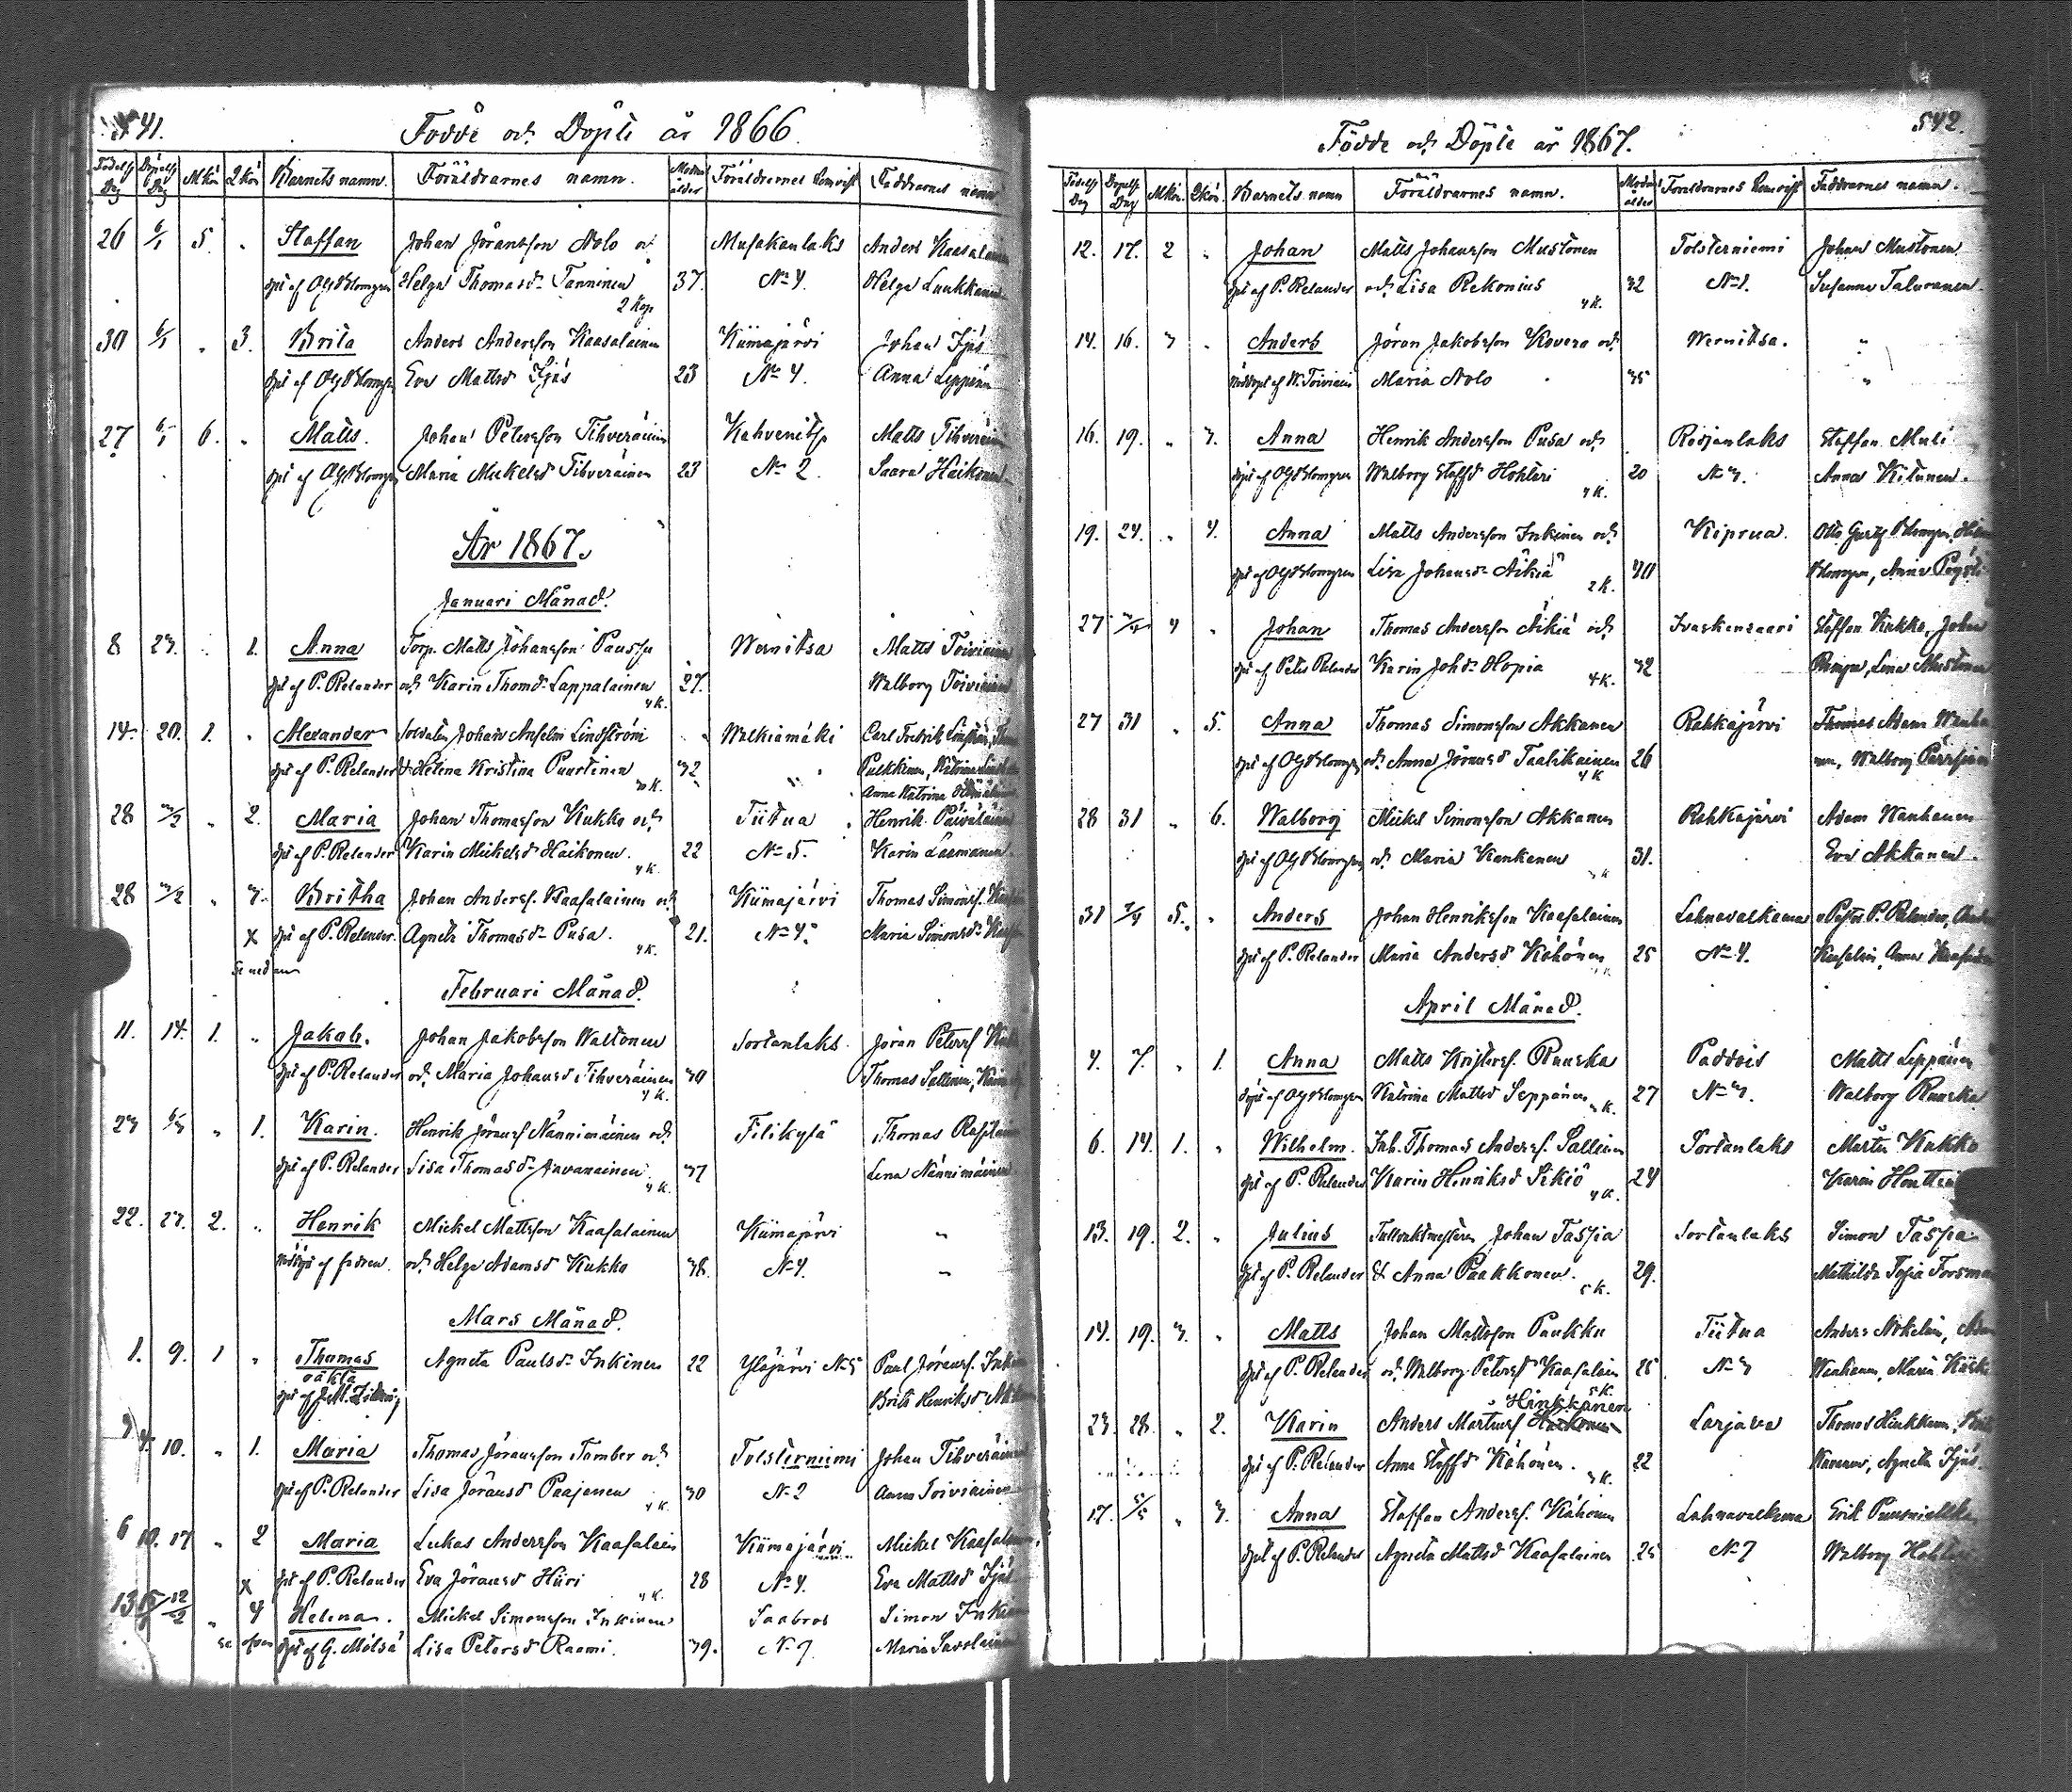 541.
Födde och Döpte år 1866.
Födelse Dag Döpelse Dag Mkön Qkön Barnets namn. Föräldrarnes namn. Modrens ålder Föräldrarnes hemvist Faddrarnes namn.
26 6/1 5. " Staffan Johan Jöransson Nolo och Musakanlaks Anders Kaasalainen
döpt af OGBlomgren Helga Thomasdr Tanninen 37. No 4. Helga Luukkanen
2 Kop
30 6/1 " 3. Brita Anders Andersson Kaasalainen Kiimajärvi Johan Sjös
döpt af OGBlomgren Eva Mattsd Sjös 23 No 4. Anna Leppänen
27 6/1 6. " Matts. Johan Petersson Tihveräinen Kahvenitsa Matts Tihveräinen
döpt af OGBlomgren Maria Mickelsd Tihveräinen 23 No 2. Saara Haikonen
År 1867.
Januari Månad.
8 23. " 1. Anna Torp. Matts Johansson Paussu Wernitsa Matts Toiviainen
döpt af P. Relander och Karin Thomd. Lappalainen 27. Walborg Toiviainen
4 K.
14. 20. 1. " Alexander Soldaten Johan Anselm Lindström Walkiamäki Carl Fredrik
döpt af P. Relander & Helena Kristina Puustinen 32 Pulkkinen, Katrina
Anna Katrina
28 3/2 " 2. Maria Johan Thomasson Kukko och Tiitua Henrik Päiväläinen
döpt af P. Relander Karin Mickelsd Haikonen. 22 No 5. Karin Laamanen
4 K.
28 3/2 " 3. Britha Johan Anderss. Kaasalainen och Kiimajärvi Thomas Simonss.
x döpt af P. Relander. Agneta Thomasdr Pusa. 21. No 4. Maria Simonsdr
4 K.
se nedan
Februari Månad.
11. 14. 1. " Jakob. Johan Jakobsson Waltonen Sortanlaks. Jöran Peterss
döpt af P. Relander och Maria Johansd Tihveräinen 30 Thomas Sallinen,
4 K.
23 6/3 " 1. Karin. Henrik Jöranss Nännimäinen och Filikylä Thomas
döpt af P. Relander Lisa Thomasdr Javanainen 37 Lena Nännimäinen
4 K.
22. 27. 2. " Henrik Mickel Mattsson Kaasalainen Kiimajärvi "
nöddöpt af fadren. och Helga Adamsd Kukko 38. No 4. "
Mars Månad.
1. 9. 1 " Thomas Agneta Paulsdr Inkinen 22 Yläjärvi No 5 Paul Jöranss. Inkinen
oäkta
döpt af Brita Henriksd
4. 10. " 1. Maria Thomas Jöransson Tamber och Tolsterniemi Johan Tihveräinen
döpt af P. Relander Lisa Jöransd Paajanen 30 No 2 Anna Toiviainen
4 K.
6 10. 17 " 2 Maria Lukas Andersson Kaasalain Kiimajärvi Mickel Kaasalainen
x döpt af P. Relander Eva Jöransd Hüri 28 No 4. Eva Mattsd Sjös
4 K.
13 12/2 " 4 Helena. Mickel Simonsson Inkinen Saabros Simon Inkinen
se ofvan döpt af G. Mölsä Lisa Petersd Raami. 39. No 7. Maria Savolainen
542.
Födde och Döpte år 1867.
Födelse Dag Döpelse Dag Mkön. Qkön. Barnets namn Föräldrarnes namn. Modrens ålder Föräldrarnes hemvist Faddrarnes namn.
12. 17. 2 " Johan Matts Johansson Mustonen Tolsterniemi Johan Mustonen
döpt af P. Relander och Lisa Rekonius 32 No 1. Susanna Talvranen
4 K.
14. 16. 3 " Anders Jöran Jakobsson Kovero och Wernitsa. "
nöddöpt af W. Toiviain Maria Nolo 35 "
16. 19. " 3. Anna Henrik Andersson Pusa och Risjanlaks Staffan
döpt af OGBlomgren Walborg Staffsd Hohteri 20 No 3. Anna Kitunen.
4 K.
19. 24. " 4. Anna Matts Andersson Inkinen och Kiprua. Otto Gustf Blomgren,
döpt af OGBlomgren Lisa Johansdr Äikiä 40 Blomgren, Anna
2 K.
27 7/4 4 " Johan Thomas Andersson Äikiä och Ivaskensaari Staffan Kukko, Johan
döpt af Peter Relander Karin Johdr Hopia 32 Lena Mustonen
4 K.
27 31 " 5. Anna Thomas Simonsson Akkanen Rahkajärvi Thomas Adam
döpt af OGBlomgren och Anna Jöransd Taalikainen 26 nen, Walborg Pärssinen
4 K
28 31 " 6. Walborg Mickel Simonsson Akkanen Rahkajärvi Adam Wanhanen
döpt af OGBlomgren och Maria Kankanen 31. Eva Akkanen.
31 7/4 5. " Anders Johan Henriksson Kaasalainen Lahnavalkama v Pastor P. Relander,
döpt af P. Relander Maria Andersd Kähönen 25 No 4. Anna Kaasalainen
April Månad.
4. 7. " 1. Anna Matts Kristerss. Ruuska Paddois Matts Leppänen
döpt af OGBlomgren Katrina Mattsd Seppänen 27 No 3. Walborg Ruuska
6. 14. 1. " Wilhelm. Inh. Thomas Anderss. Sallinen Sortanlaks Mårten Kukko
döpt af P. Relander Karin Henriksd Sikiö 24 Karin
4 K.
13. 19. 2. " Julius Johan Tassia Sortanlaks Simon Tassia
döpt af P. Relander & Anna Paakkonen. 29. Mathilda Sofia Forsman
5 K.
14. 19. 3. " Matts Johan Mattsson Paukku Tiitua Anders
döpt af P. Relander och Walborg Petersd Kaasalain 25 No 3 Wanhanen, Maria
5 K.
Hinkkanen
23. 28. " 2. Karin Anders Mårtenss Larjava Thomas Hinkkanen,
döpt af P. Relander Anna Staffsd Kähönen. 22 Kavanen, Agneta Sjös.
17. 5/5 " 3. Anna Staffan Anderss. Kähönen Lahnavalkama Erik
döpt af P. Relander Agneta Mattsd Kaasalainen 25 No 7 Walborg